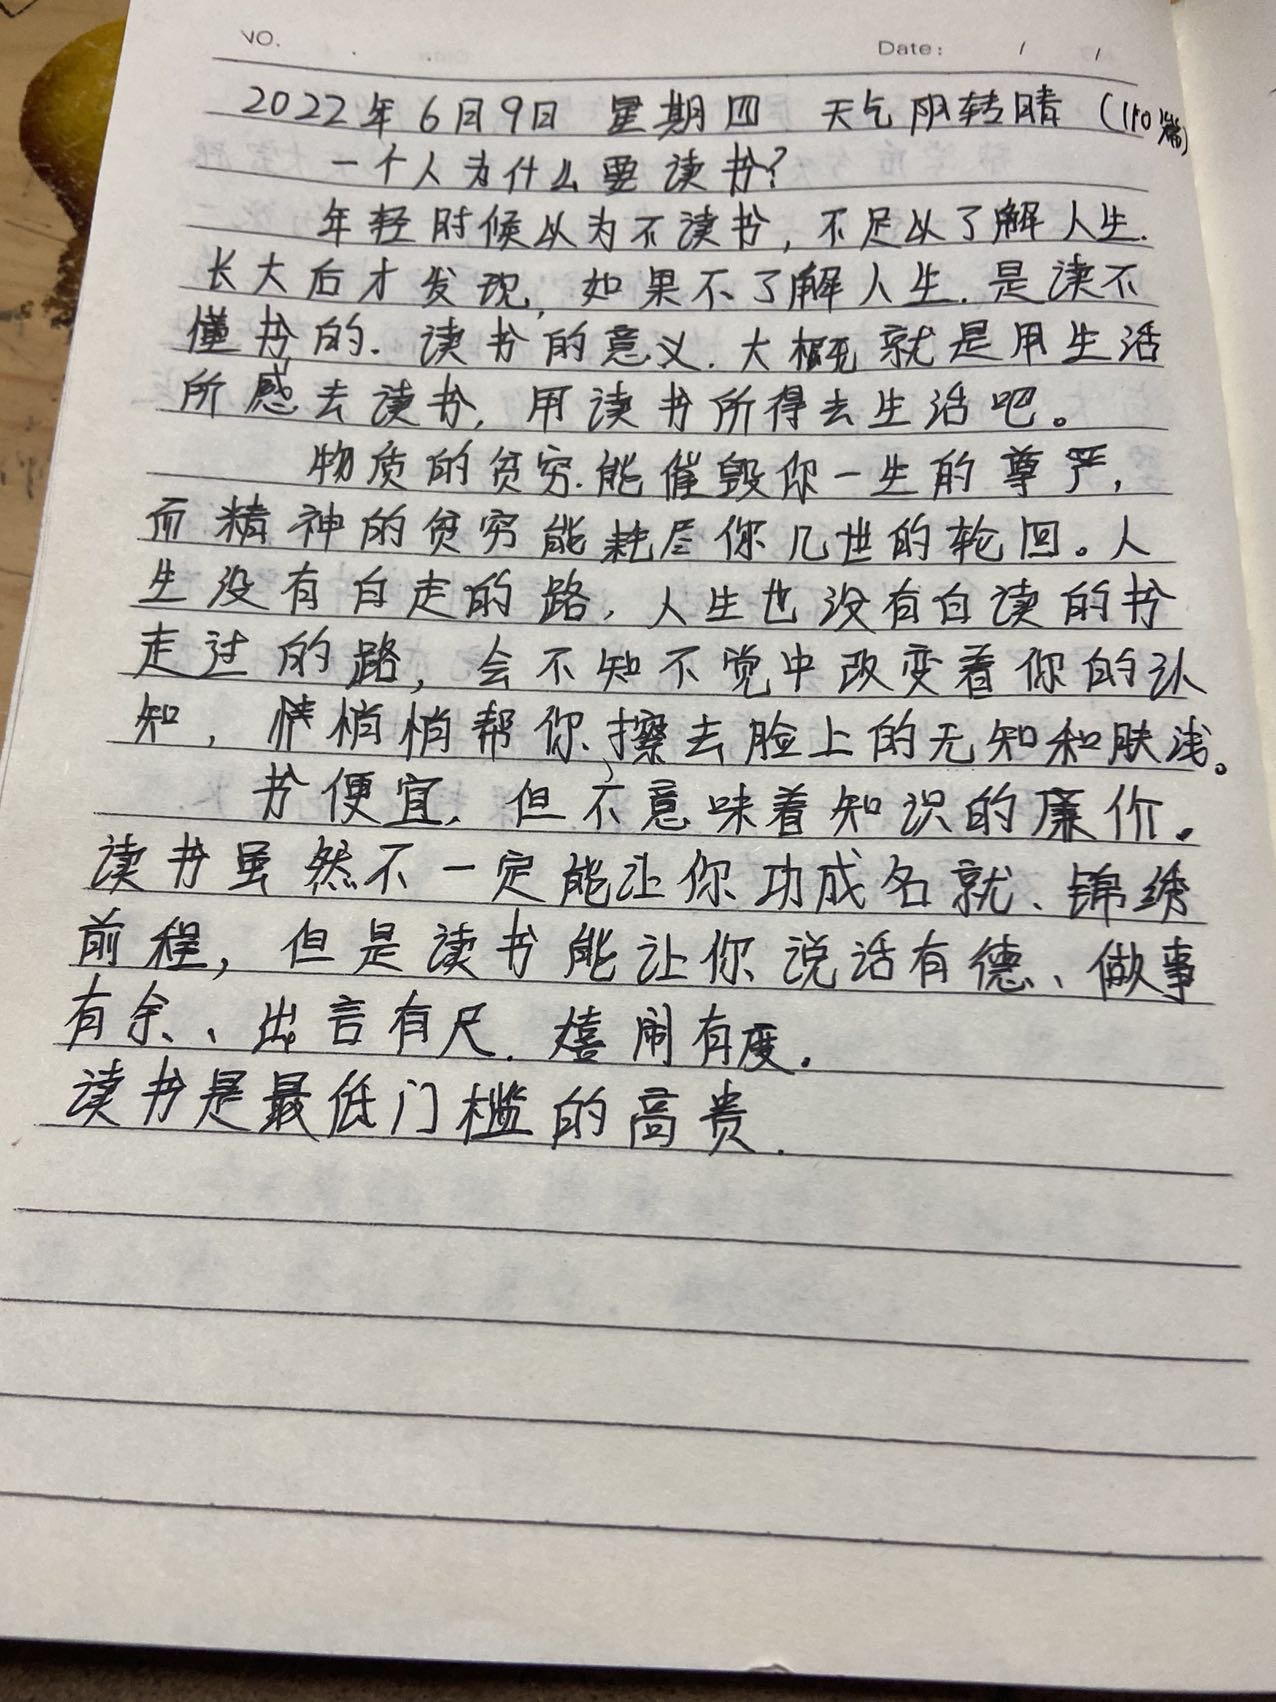 NO.
Date: / /
2022年6月9日 星期四 天气阴转晴 (110篇)
一个人为什么要读书?
年轻时候以为不读书,不足以了解人生.
长大后才发现,如果不了解人生.是读不
懂书的.读书的意义.大概就是用生活
所感去读书,用读书所得去生活吧。
物质的贫穷.能催毁你一生的尊严,
而精神的贫穷能耗尽你几世的轮回。人
生没有白走的路,人生也没有白读的书
走过的路,会不知不觉中改变着你的认
知,悄悄帮你擦去脸上的无知和肤浅。
书便宜,但不意味着知识的廉价.
读书虽然不一定能让你功成名就、锦绣
前程,但是读书能让你说话有德、做事
有余、出言有尺.嬉闹有度.
读书是最低门槛的高贵.